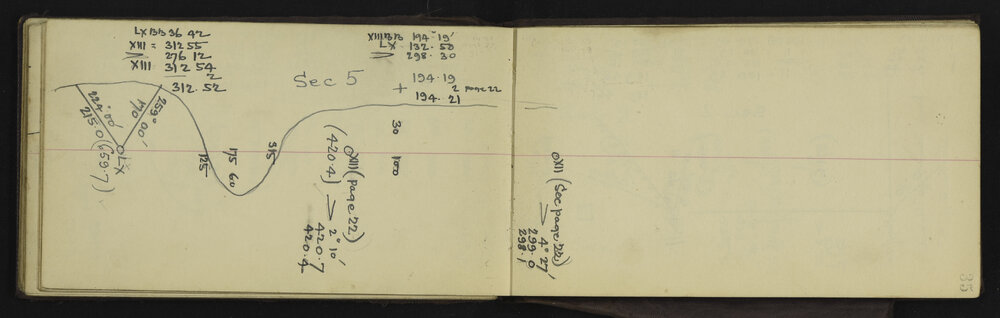 LX BB 36 42
XIII = 312 55
276 12
XIII 312 54
2
312.52
XIII BB 194°19'
LX . 132.50
298.30
194.19
+ 2 page 22
194.21
Sec 5
224°00'
215.0 (659.7)
259°00'
170
LX
125
175 60
315
30 100
XIII (page 22)
(420.4) > 2°10'
420.7
420.4
XII (See page 22)
> 4°27'
299.0
298.1
35